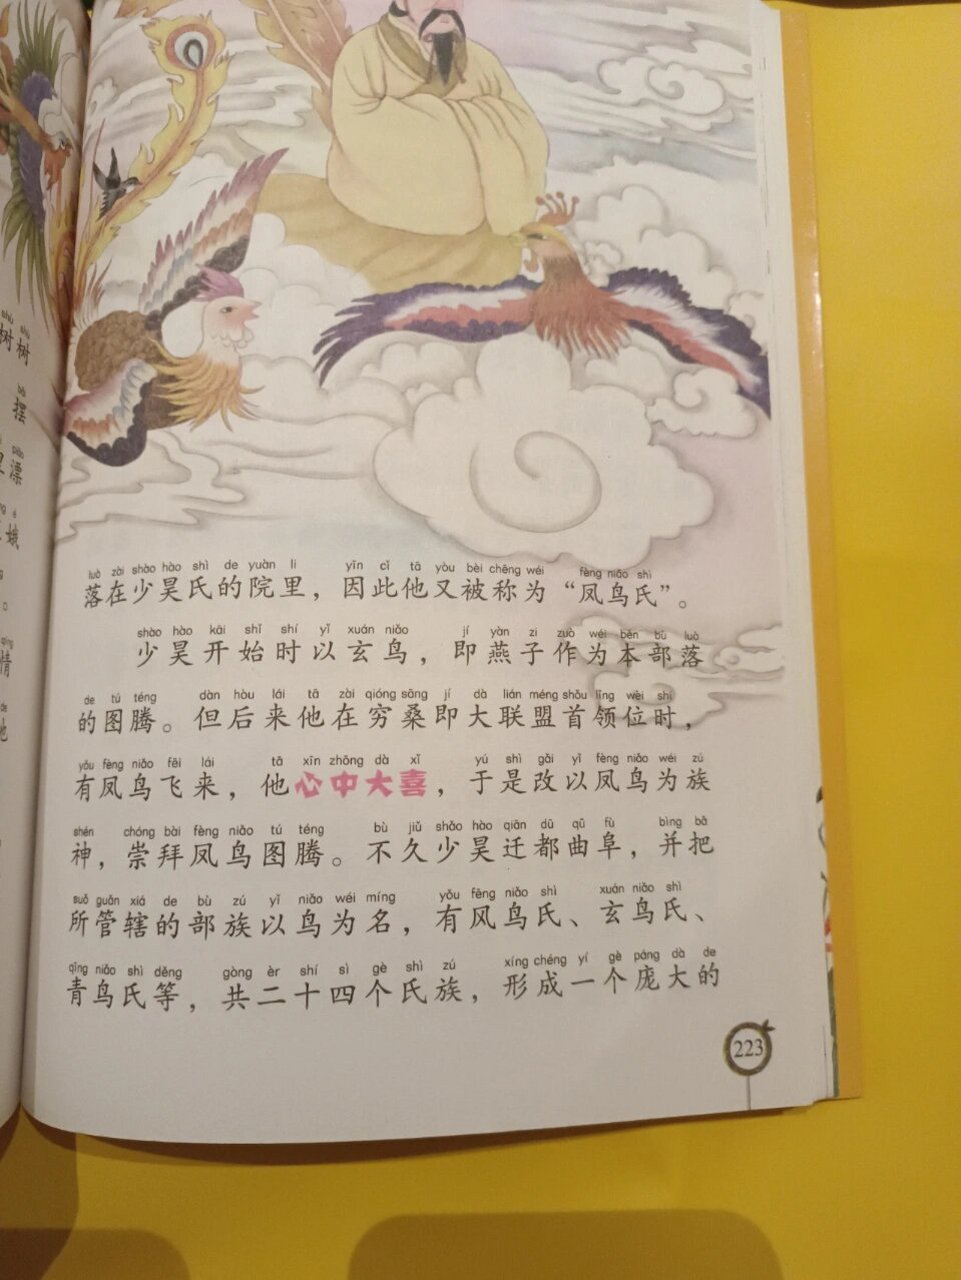 shù shù
树树
bǎi
摆
piāo
漂
é
娥
qíng
情
luò zài shào hào shì de yuàn li yīn cǐ tā yòu bèi chēng wéi fèng niǎo shì
落在少昊氏的院里，因此他又被称为“凤鸟氏”。
shào hào kāi shǐ shí yǐ xuán niǎo jí yàn zi zuò wéi běn bù luò
少昊开始时以玄鸟，即燕子作为本部落
de tú téng dàn hòu lái tā zài qióng sāng jí dà lián méng shǒu lǐng wèi shí
的图腾。但后来他在穷桑即大联盟首领位时，
yǒu fèng niǎo fēi lái tā xīn zhōng dà xǐ yú shì gǎi yǐ fèng niǎo wéi zú
有凤鸟飞来，他心中大喜，于是改以凤鸟为族
shén chóng bài fèng niǎo tú téng bù jiǔ shǎo hào qiān dū qū fù bìng bǎ
神，崇拜凤鸟图腾。不久少昊迁都曲阜，并把
suǒ guǎn xiá de bù zú yǐ niǎo wéi míng yǒu fèng niǎo shì xuán niǎo shì
所管辖的部族以鸟为名，有风鸟氏、玄鸟氏、
qīng niǎo shì děng gòng èr shí sì gè shì zú xíng chéng yí gè páng dà de
青鸟氏等，共二十四个氏族，形成一个庞大的
223